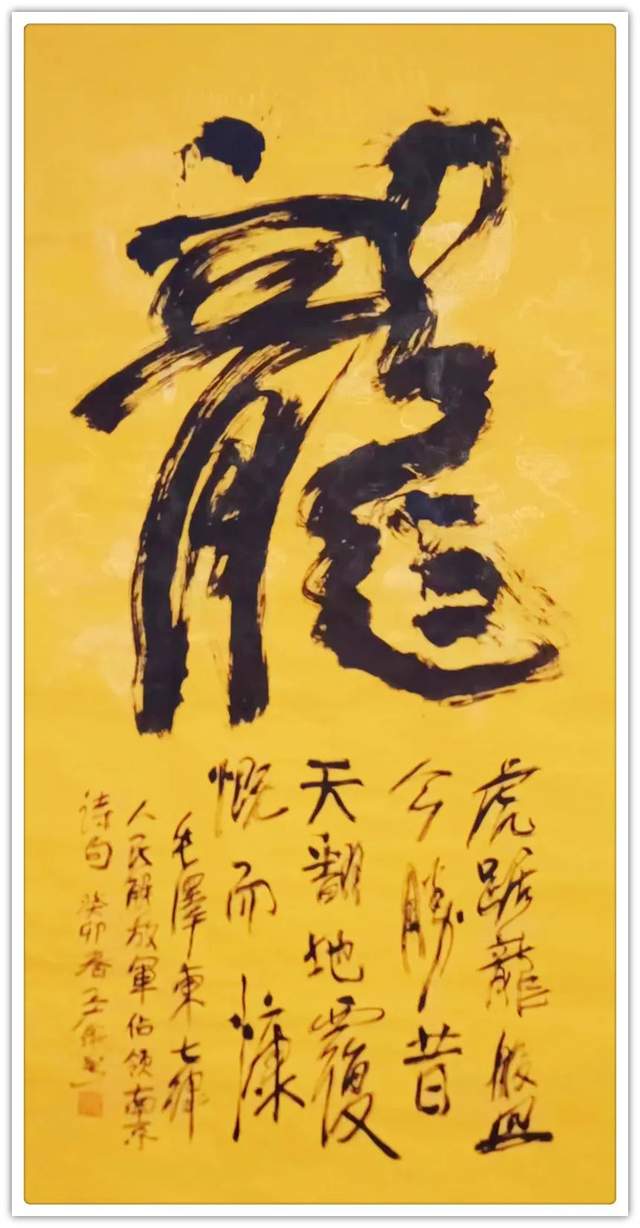 龍
虎踞龍盤
今勝昔
天翻地覆
慨而慷
毛澤東七律
人民解放軍佔領南京
詩句 癸卯春王